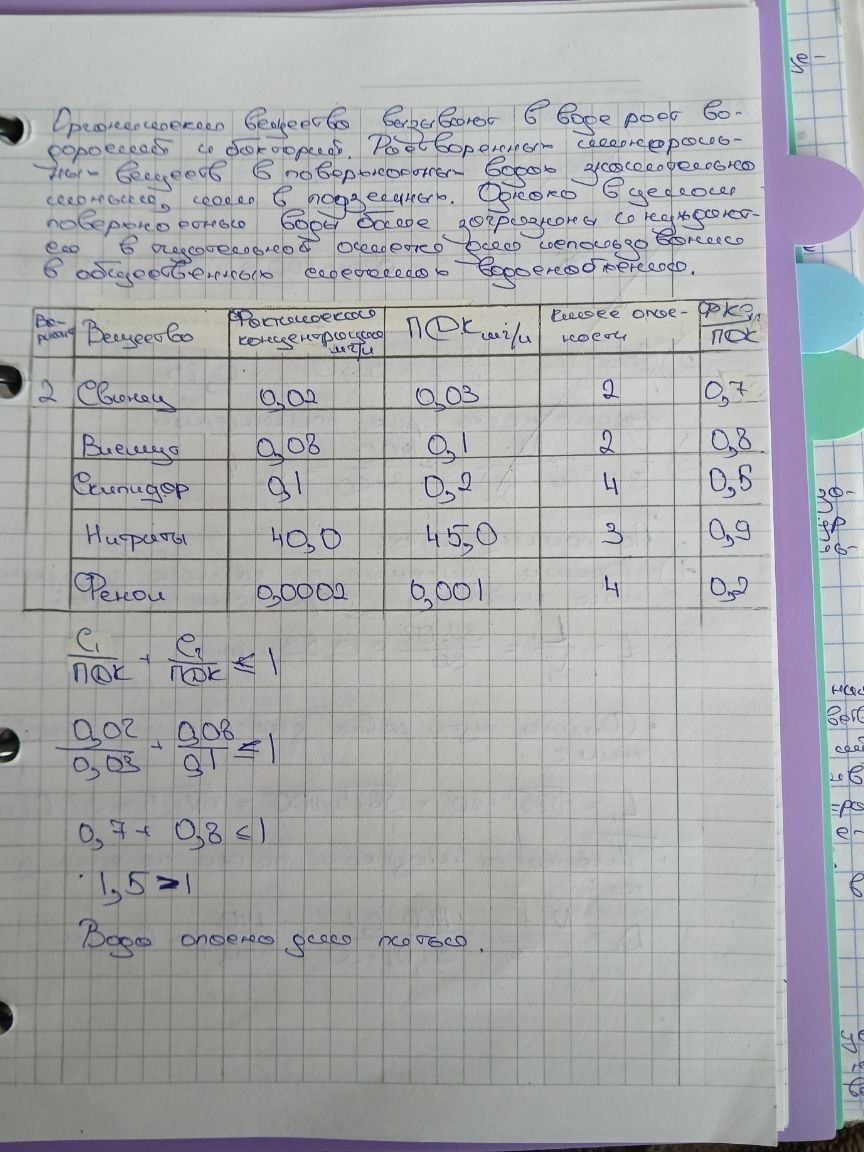 Органические вещества вызывают в воде рост во-
дорослей и бактерий. Растворенных минераль-
ных веществ в поверхностных водах значительно
меньше, чем в подземных. Однако в целом
поверхностные воды более загрязнены и нуждают-
ся в тщательной очистке для использования
в общественных системах водоснабжения.
Ва-
риант Вещество Фактическая концентрация мг/л ПДК мг/л Класс опас-
ности ФКЗ/ПДК
2 Свинец 0,02 0,03 2 0,7
Висмут 0,08 0,1 2 0,8
Скипидар 0,1 0,2 4 0,5
Нитраты 40,0 45,0 3 0,9
Фенол 0,0002 0,001 4 0,2
C₁/ПДК + C₂/ПДК ≤ 1
0,02/0,03 + 0,08/0,1 ≤ 1
0,7 + 0,8 < 1
1,5 > 1
Вода опасна для питья.